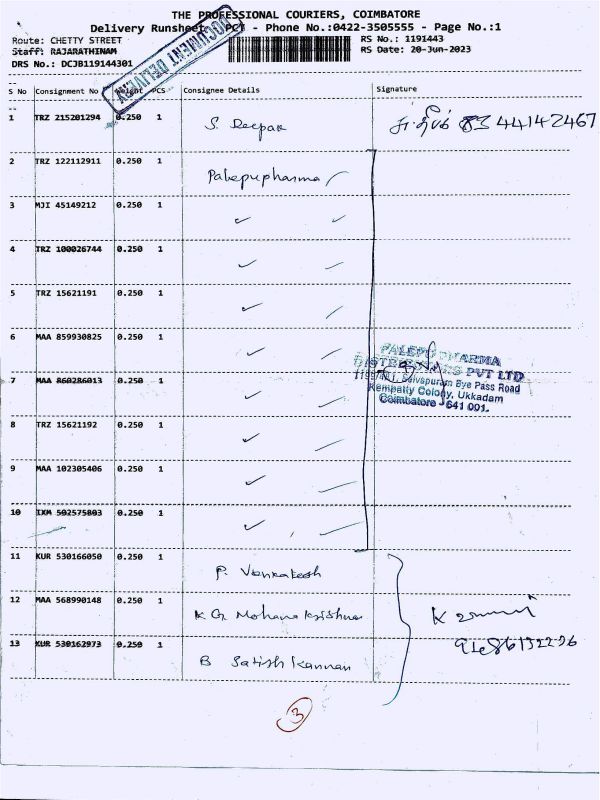 THE PROFESSIONAL COURIERS, COIMBATORE
Delivery Runsheet - PCT - Phone No.:0422-3505555 - Page No.:1
Route: CHETTY STREET RS No.: 1191443
Staff: RAJARATHINAM RS Date: 20-Jun-2023
DRS No.: DCJB119144301
DOCUMENT DELIVERY
S No Consignment No Weight PCS Consignee Details Signature
1 TRZ 215201294 0.250 1 S. Deepak 83 44142467
2 TRZ 122112911 0.250 1 Palepupharma
3 MJI 45149212 0.250 1
4 TRZ 100026744 0.250 1
5 TRZ 15621191 0.250 1
6 MAA 859930825 0.250 1
PALEPU PHARMA
DISTRIBUTORS PVT LTD
7 MAA 860286013 0.250 1
Selvapuram Bye Pass Road
Kempatty Colony, Ukkadam
Coimbatore - 641 001.
8 TRZ 15621192 0.250 1
9 MAA 102305406 0.250 1
10 IXM 502575803 0.250 1
11 KUR 530166050 0.250 1 P. Venkatesh
12 MAA 568990148 0.250 1 K G Mohana Krishna
13 KUR 530162973 0.250 1 B Satish Kannan
3